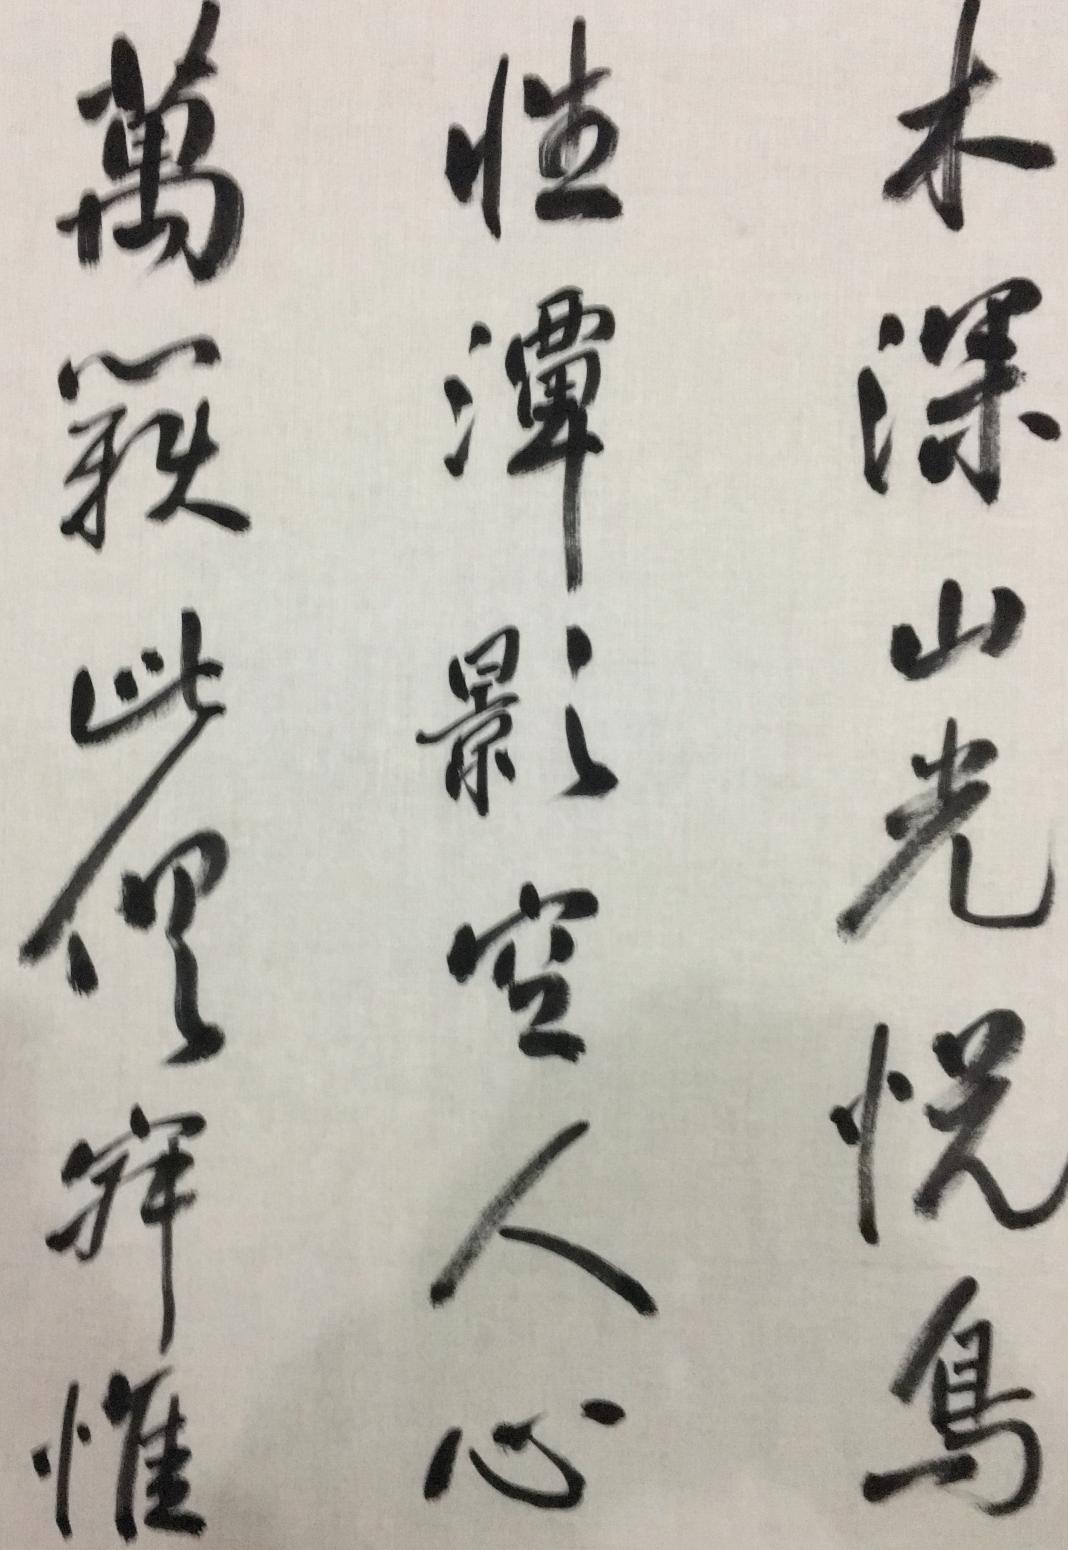 木深山光悦鳥
性潭影空人心
萬籟此俱寂惟